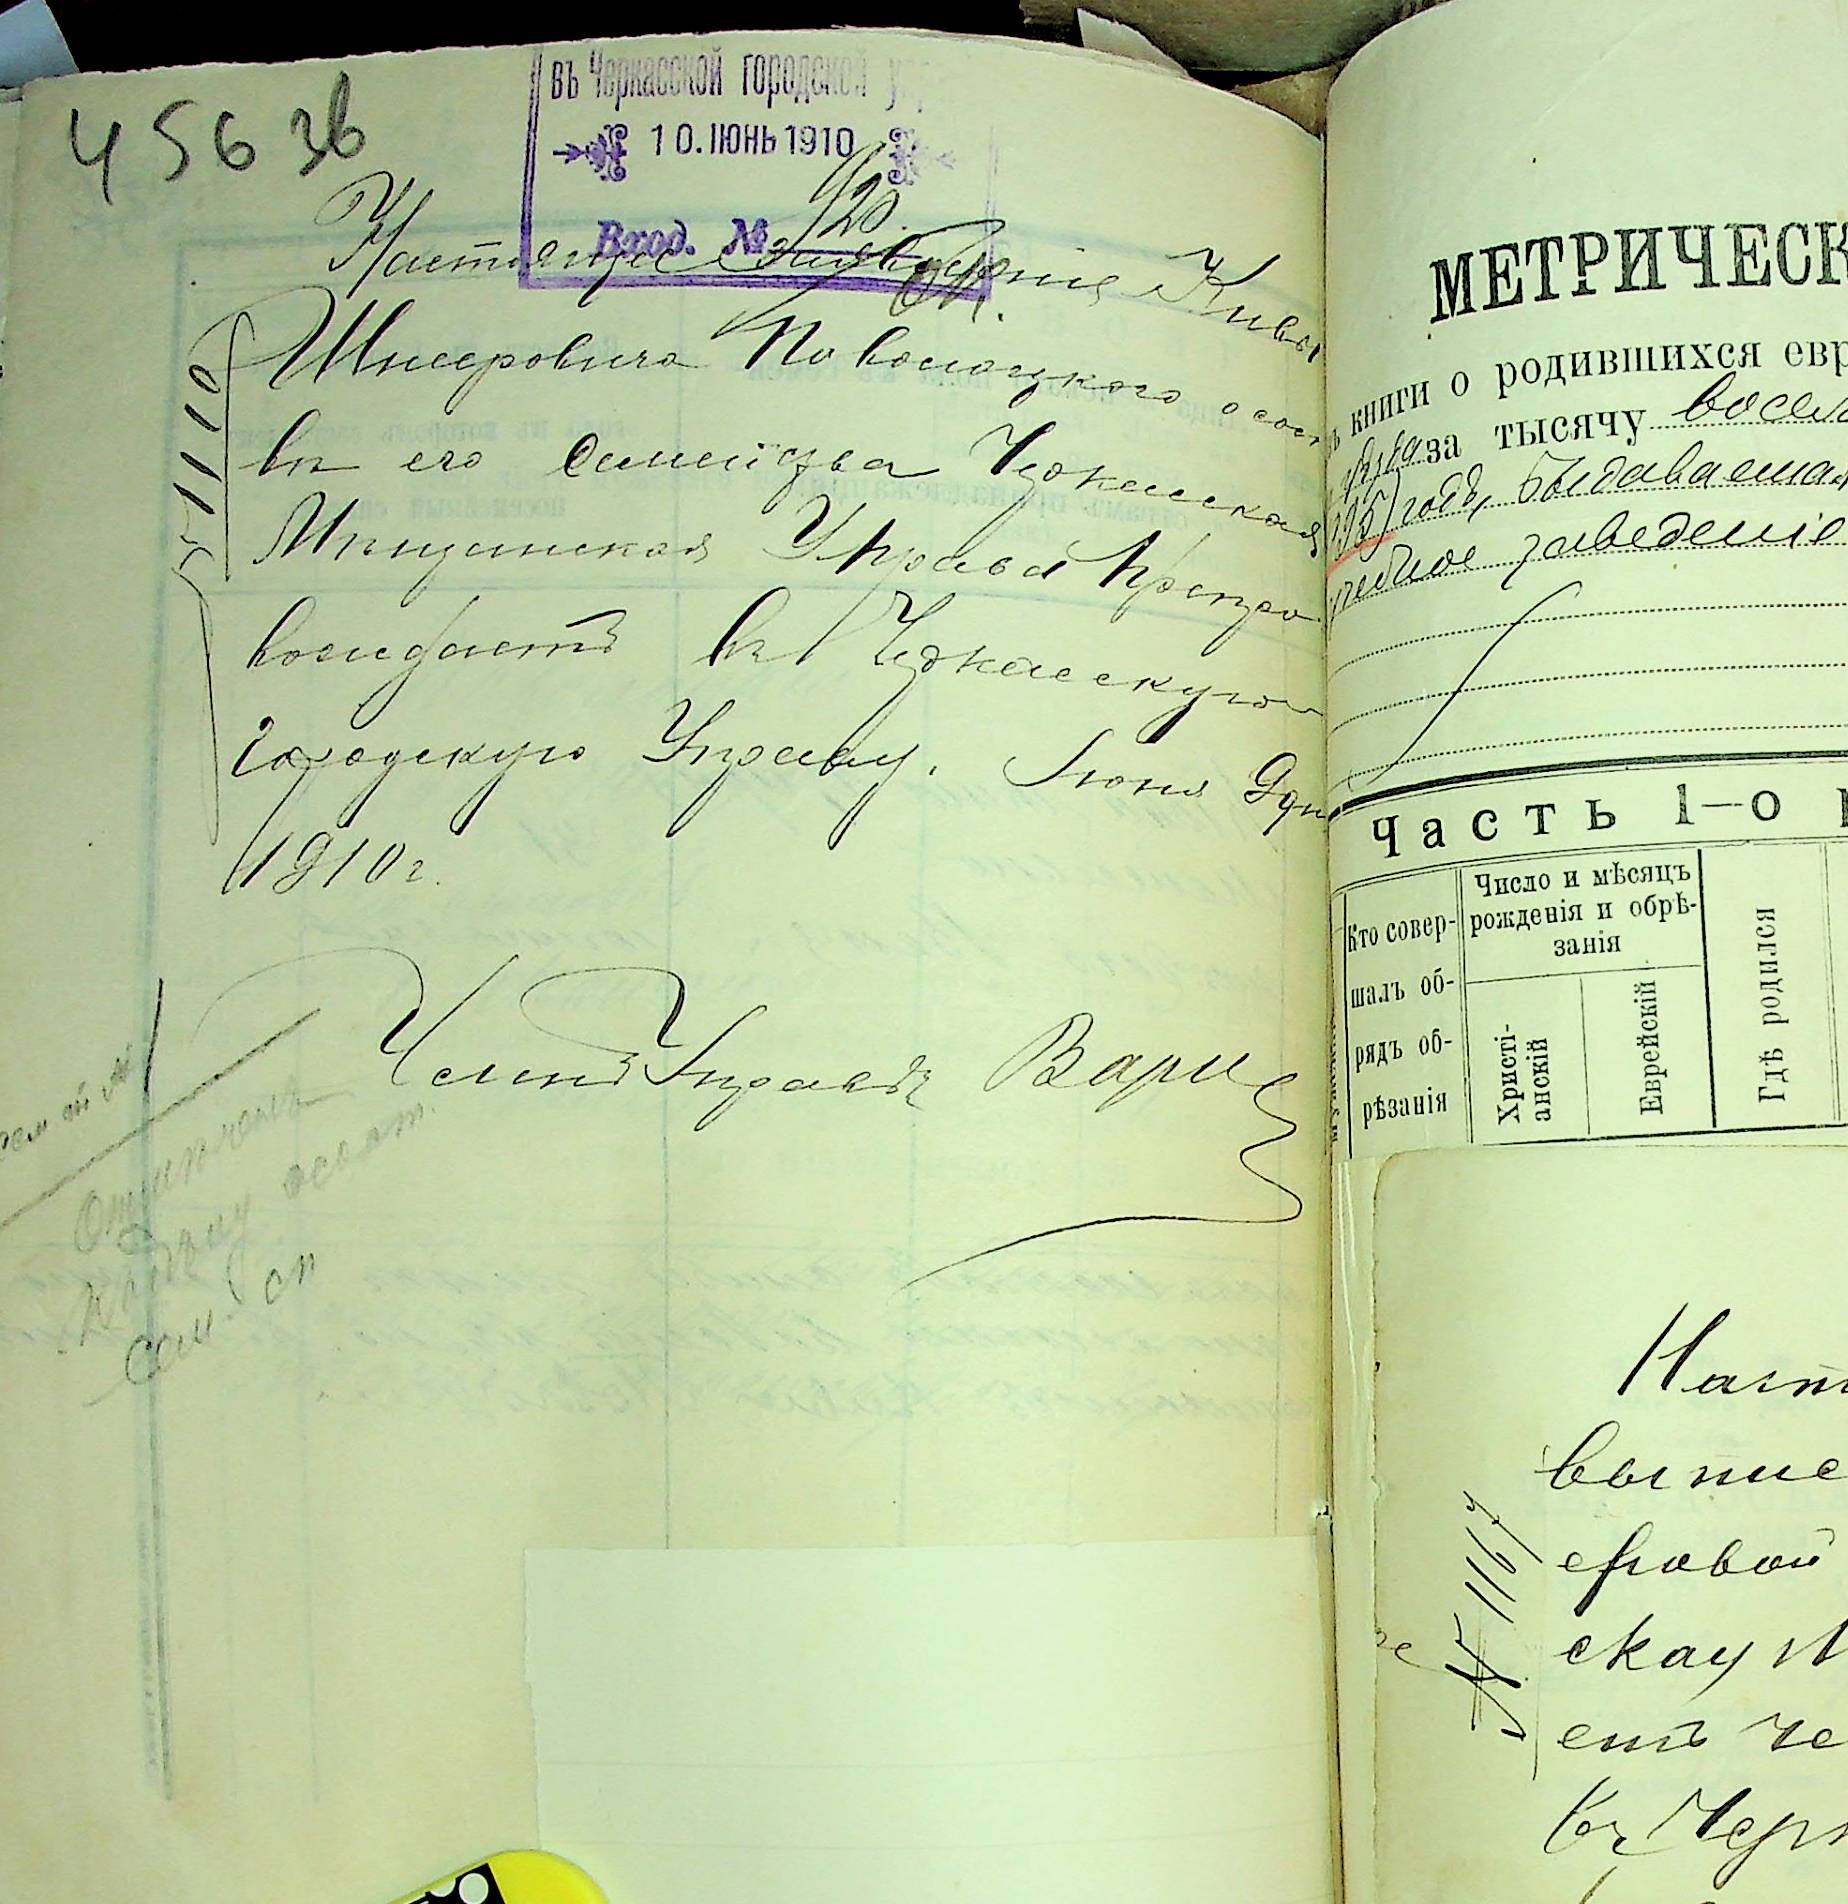 456 зв
въ Черкасской городской упр
10. ІЮНЬ 1910
Вход. №
920
Настоящее заявленіе Кивы
Шнеровича Поволоцкого о сост
въ его семейства Черкасская
Мѣщанская Управа препро
вождаетъ въ Черкасскую
Городскую Управу. Іюня 9 дня
1910 г.
№ 1110
Членъ Управы Вари
МЕТРИЧЕСК
книги о родившихся евр
за тысячу восем
895) годъ, выдаваемая
учебное заведеніе
Часть 1-о
Кто совер-
шалъ об-
рядъ об-
рѣзанія
Число и мѣсяцъ
рожденія и обрѣ-
занія
Христі-
анскій
Еврейскій
Гдѣ родился
Наст
выпис
еровой
скау М
етъ че
въ Черк
№ 1167